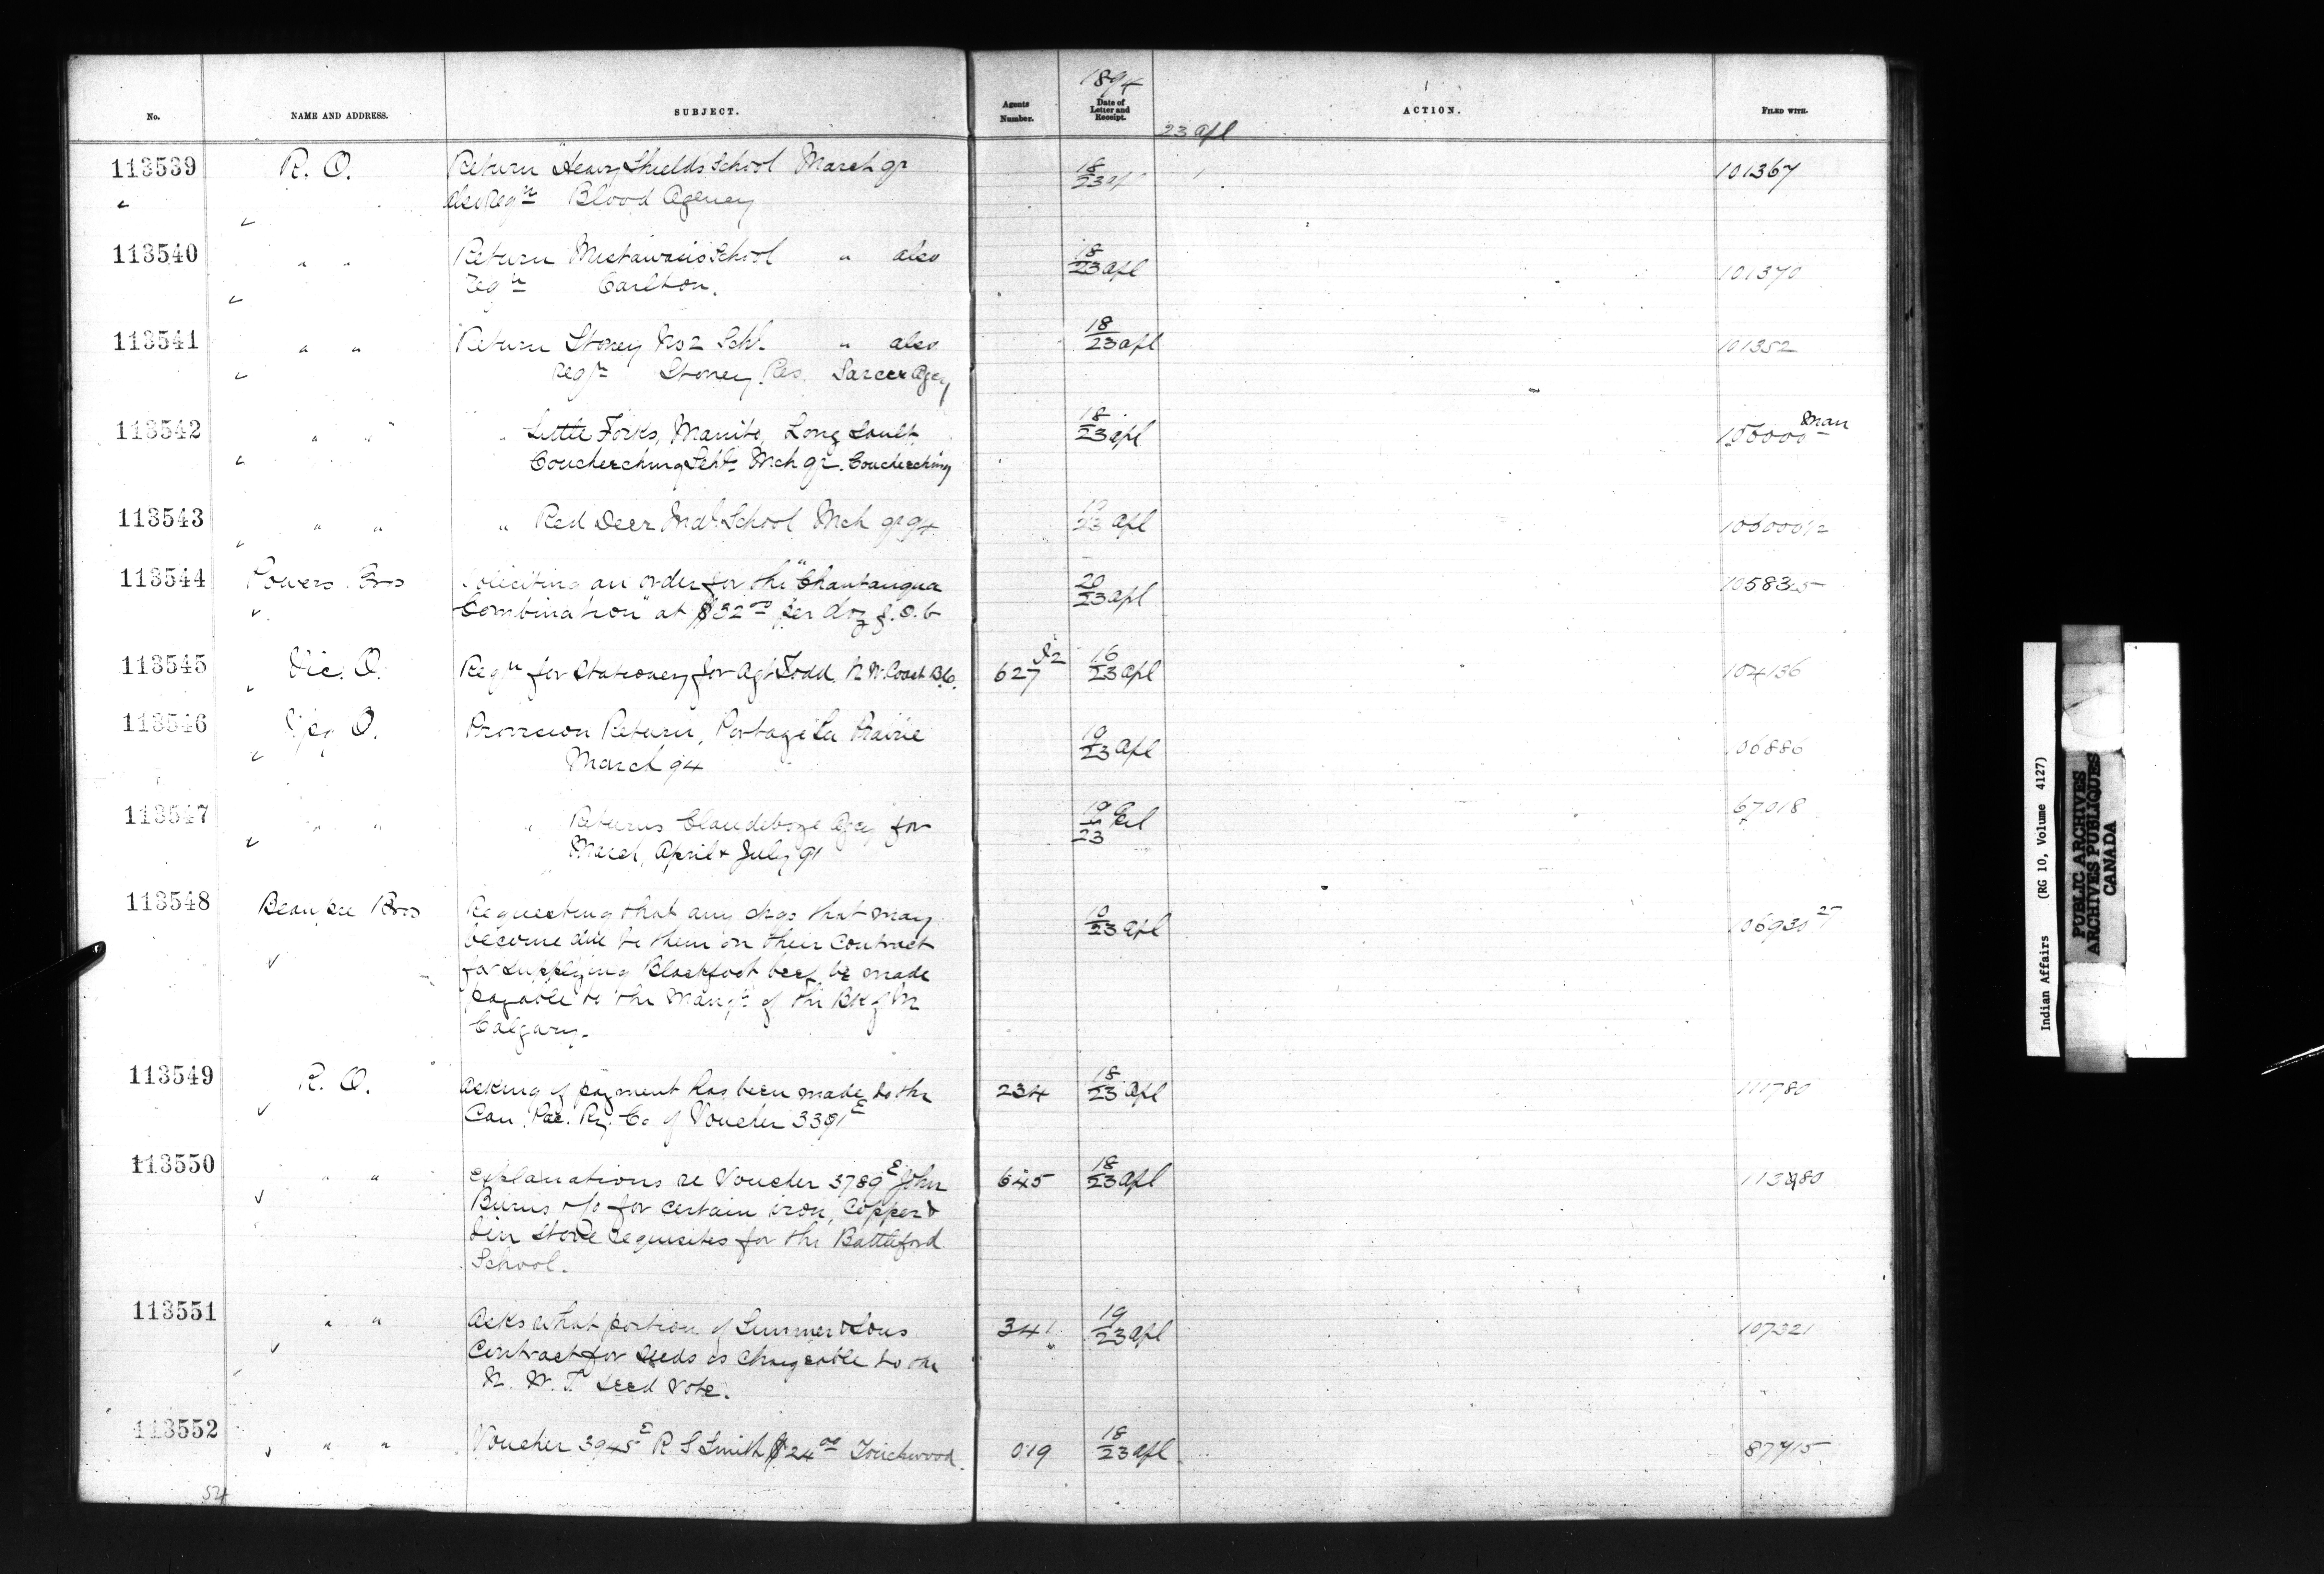 1894
No. NAME AND ADDRESS. SUBJECT. Agents Number. Date of Letter and Receipt. ACTION. FILED WITH.
23 apl
113539 R. O. Return Heavy Shields School March qr 18/23 ap 101367
also Reqn Blood Agency
113540 " " Return Mistawasis School " also 18/23 apl 101370
reqn Carlton.
113541 " " Return Stoney No 2 Schl. " also 18/23 apl 101352
reqn Stoney Res. Sarcee Agcy
113542 " " " Little Forks, Manito, Long Sault, 18/23 apl 100000 Man
Coucheching Schls Mch qr. Coucheching
113543 " " " Red Deer Indl. School Mch qr 94 23 apl
113544 Powers Bros Soliciting an order for the "Chautauqua 20/23 apl 105835
Combination" at $32 00 per doz f.o.b
113545 Vic. O. Reqn for Stationery for Agt Todd N W Coast B.C. 627 16/23 apl 104136
113546 O. Provision Return, Portage La Prairie 19/23 apl 06886
March 94
113547 " " " Returns Clandeboye Agcy for 19/23 67018
March, April & July 91
113548 Beaupre Bros Requesting that any chqs that may 10/23 apl 106930 27
become due to them on their contract
for supplying Blackfoot beef be made
payable to the Mangr of the Bk of M
Calgary.
113549 R. O. Asking if payment has been made to the 234 18/23 apl 111780
Can. Pac. Ry. Co of Voucher 3391 E
113550 " " Explanations re Voucher 3789 E John 645 18/23 apl
Burns & Co for certain iron, copper &
tin stove requisites for the Battleford
School.
113551 " " Asks what portion of Simmer & Sons 341 19/23 apl 107321
Contract for seeds is chargeable to the
N. W. T. seed vote.
113552 " " Voucher 3945 E R S Smith $24 00 Touchwood. 019 18/23 apl 87715
54
Indian Affairs (RG 10, Volume 4127)
PUBLIC ARCHIVES
ARCHIVES PUBLIQUES
CANADA